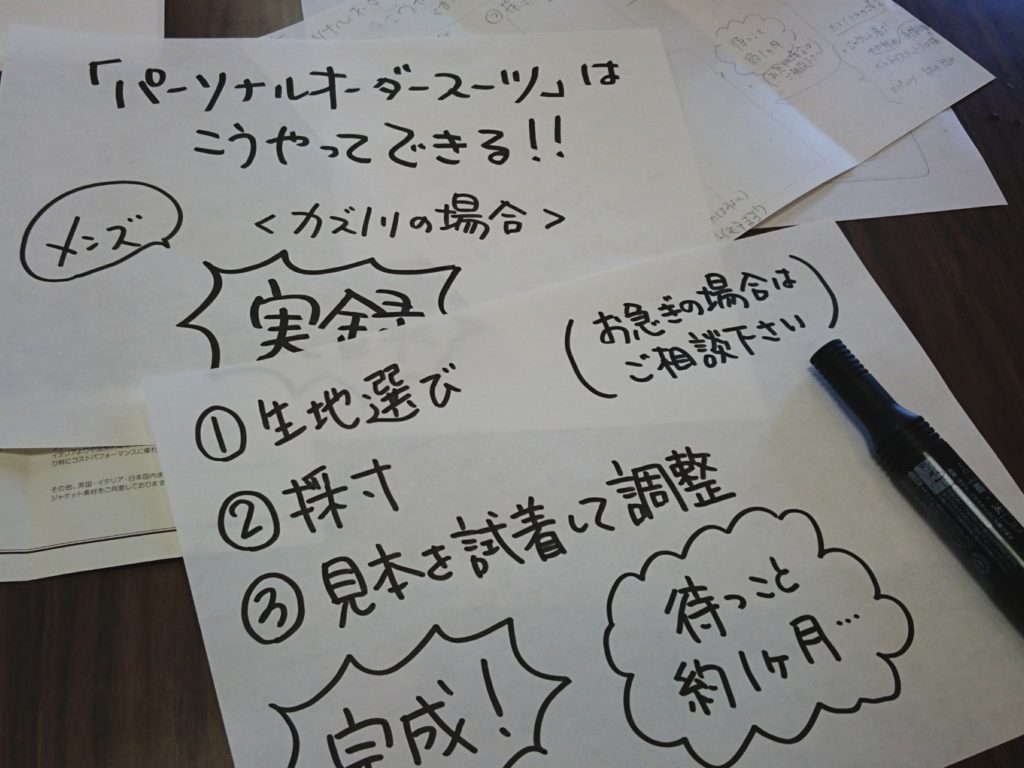 「パーソナルオーダースーツ」は
こうやってできる!!
メンズ
<カズノリの場合>
実録
(お急ぎの場合は
ご相談下さい)
①生地選び
②採寸
③見本を試着して調整
待つこと
約1ヶ月…
完成!
り特にコストパフォーマンスに優れ
その他、英国・イタリア・日本国内ま
ジャケット素材をご用意しております
待つこと
約1ヶ月